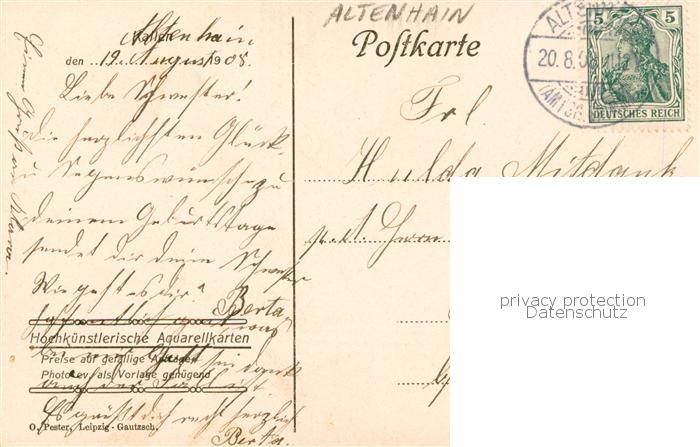 ALTENHAIN
Altenhain
Postkarte
den 19. August 1908.
Liebe Schwester!
Die herzlichsten Glück-
u Segenswünsche zu
deinem Geburtstage
sendet dir dein Schwester
Berta
Wie geht es dir?
Hochkünstlerische Aquarellkarten
Preise auf gefällige Anfragen
Photo ev. als Vorlage genügend
Es grüßt dich recht herzlich
Berta.
O. Pester, Leipzig-Gautzsch.
Frl.
Hulda Mitdank
p. a. Herrn
ALTENH
20.8.08
5 5
DEUTSCHES REICH
privacy protection
Datenschutz